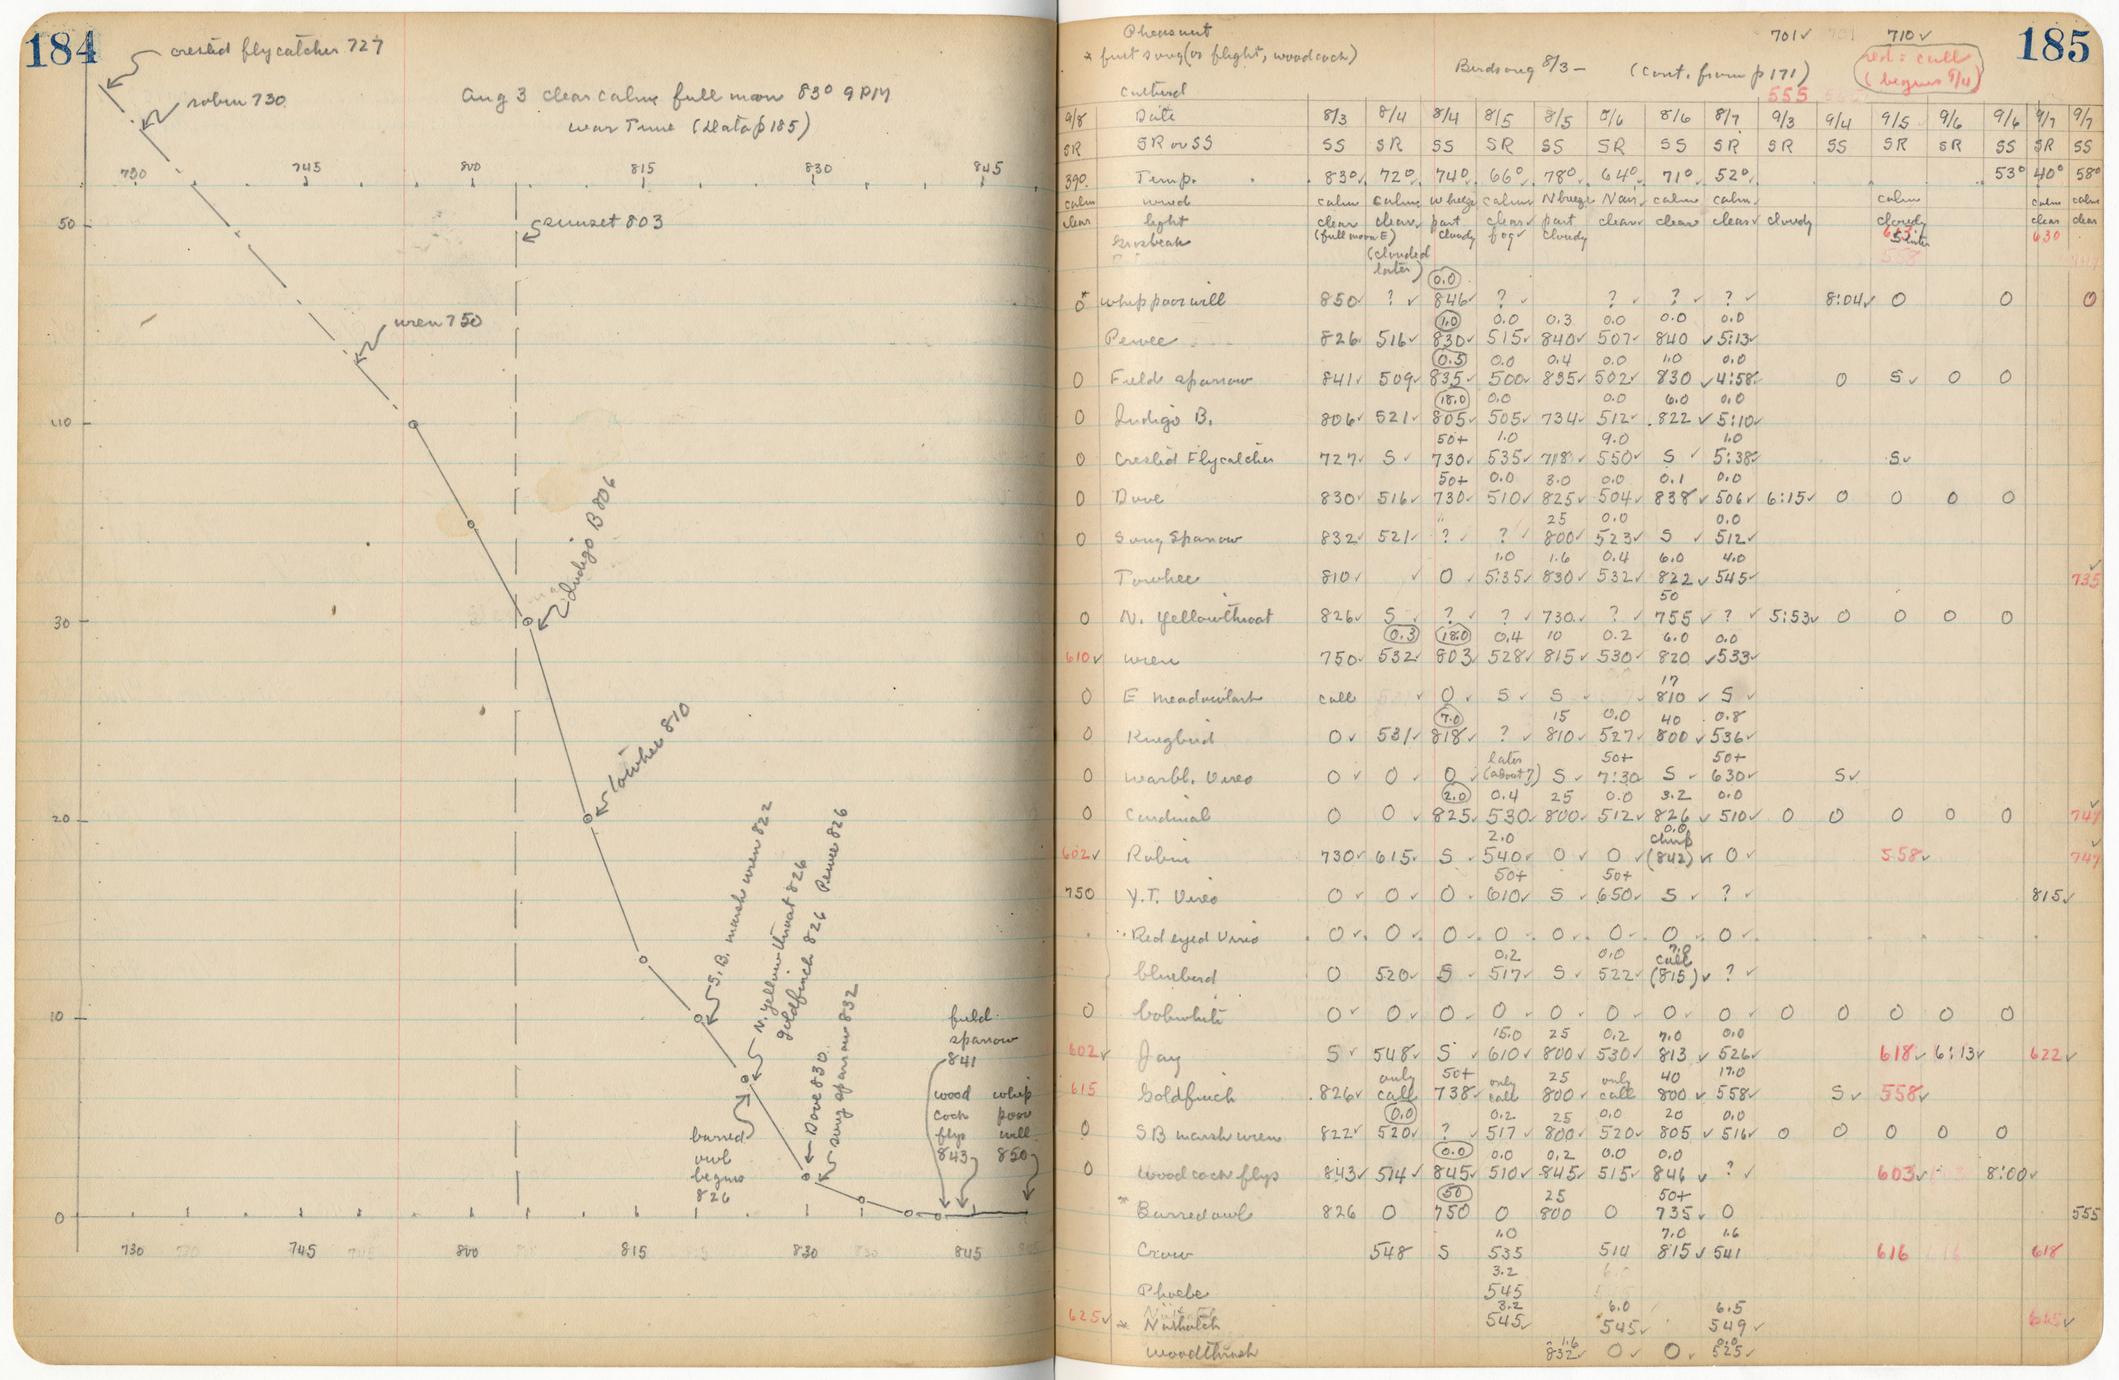 184
crested flycatcher 727
robin 730
Aug 3 clear calm full moon 83° 9 PM
War Time (Data p 185)
730 745 800 815 830 845
50
sunset 803
wren 750
Indigo B 806
30
Towhee 810
20
S. B. marsh wren 822
N. yellowthroat 826
goldfinch 826 Pewee 826
Dove 830
song sparrow 832
10
field
sparrow
841
wood whip
cock poor
flys will
843 850
barred
owl
begins
826
0
730 745 800 815 830 845
185
Pheasant 701✓ 710✓
* first song (or flight, woodcock)
Birdsong 8/3 – (Cont. from p 171)
red = call
(begins 9/4)
Catbird 555
9/8 Date 8/3 8/4 8/4 8/5 8/5 8/6 8/6 8/7 9/3 9/4 9/5 9/6 9/6 9/7 9/7
SR SR or SS SS SR SS SR SS SR SS SR SR SS SR SR SS SR SS
39° Temp. 83° 72° 74° 66° 78° 64° 71° 52° 53° 40° 58°
calm wind calm calm W breeze calm N breeze N air calm calm calm calm calm
clear light clear clear part clear part clear clear clear cloudy cloudy clear clear
Grosbeak (full moon E) cloudy fog cloudy 630
(clouded
later) 0.0
0 * whippoorwill 850 ? ✓ 846 ? ✓ ? ✓ ? ✓ ? ✓ 8:04✓ 0 0 0
1.0 0.0 0.3 0.0 0.0 0.0
Pewee 826 516✓ 830 515✓ 840✓ 507✓ 840 ✓ 5:13✓
0.5 0.0 0.4 0.0 1.0 0.0
0 Field sparrow 841✓ 509✓ 835✓ 500✓ 835✓ 502✓ 830 ✓ 4:58✓ 0 S✓ 0 0
18.0 0.0 0.0 6.0 0.0
0 Indigo B. 806✓ 521✓ 805✓ 505✓ 734✓ 512✓ 822 ✓ 5:10✓
50+ 1.0 9.0 1.0
0 Crested Flycatcher 727✓ S ✓ 730✓ 535✓ 718✓ 550✓ S ✓ 5:38✓ S✓
50+ 0.0 3.0 0.0 0.1 0.0
0 Dove 830✓ 516✓ 730✓ 510✓ 825✓ 504✓ 838✓ 506✓ 6:15✓ 0 0 0 0
25 0.0 0.0
0 Song Sparrow 832✓ 521✓ ? ✓ ? ✓ 800✓ 523✓ S ✓ 512✓
1.0 1.6 0.4 6.0 4.0
Towhee 810✓ ✓ 0 ✓ 5:35✓ 830✓ 532✓ 822✓ 545✓ 735
50
0 N. Yellowthroat 826✓ S ✓ ? ✓ ? ✓ 730✓ ? ✓ 755 ✓ ? ✓ 5:53✓ 0 0 0 0
0.3 18.0 0.4 10 0.2 6.0 0.0
610✓ wren 750✓ 532✓ 803✓ 528✓ 815✓ 530✓ 820 ✓533✓
17
0 E meadowlark call ✓ 0 ✓ S ✓ S ✓ 810 ✓ S ✓
7.0 15 0.0 40 0.8
0 Kingbird 0✓ 531✓ 818✓ ? ✓ 810✓ 527✓ 800 ✓ 536✓
later 50+ 50+
0 warbl. Vireo 0 ✓ 0 ✓ 0 ✓ (about 7) S ✓ 7:30 S ✓ 630✓ S✓
2.0 0.4 25 0.0 3.2 0.0
0 Cardinal 0 0 ✓ 825✓ 530✓ 800✓ 512✓ 826 ✓ 510✓ 0 0 0 0 0 747
2.0 0.0
chirp
602✓ Robin 730✓ 615✓ S ✓ 540✓ 0 ✓ 0 ✓ (842) ✓ 0 ✓ 558✓ 747
50+ 50+
750 Y.T. Vireo 0 ✓ 0 ✓ 0 ✓ 610✓ S ✓ 650✓ S ✓ ? ✓ 815✓
Red eyed Vireo 0 ✓ 0 ✓ 0 ✓ 0 ✓ 0 ✓ 0 ✓ 0 ✓ 0 ✓
0.2 0.0 7.0
call
bluebird 0 520✓ S ✓ 517✓ S ✓ 522✓ (815)✓ ? ✓
0 bobwhite 0 ✓ 0 ✓ 0 ✓ 0 ✓ 0 ✓ 0 ✓ 0 ✓ 0 ✓ 0 0 0 0 0
15.0 25 0.2 7.0 0.0
602✓ Jay S ✓ 548✓ S ✓ 610✓ 800✓ 530✓ 813 ✓ 526✓ 618✓ 6:13✓ 622✓
only 50+ only 25 only 40 17.0
615 Goldfinch 826✓ call 738✓ call 800 ✓ call 800 ✓ 558✓ S✓ 558✓
0.0 0.2 25 0.0 20 0.0
0 SB marsh wren 822✓ 520✓ ? ✓ 517✓ 800✓ 520✓ 805 ✓ 516✓ 0 0 0 0 0
0.0 0.0 0.2 0.0 0.0
0 Woodcock flys 843✓ 514✓ 845✓ 510✓ 845✓ 515✓ 846 ✓ ? ✓ 603✓ 8:00✓
50 25 50+
* Barred owl 826 0 750 0 800 0 735✓ 0 555
1.0 7.0 1.6
Crow 548 S 535 510 815✓ 541 616 618
3.2
Phoebe 545
3.2 6.0 6.5
625✓ * Nuthatch 545✓ 545✓ 549✓ 645✓
1.6 0.0
Woodthrush 832✓ 0 ✓ 0 ✓ 525✓